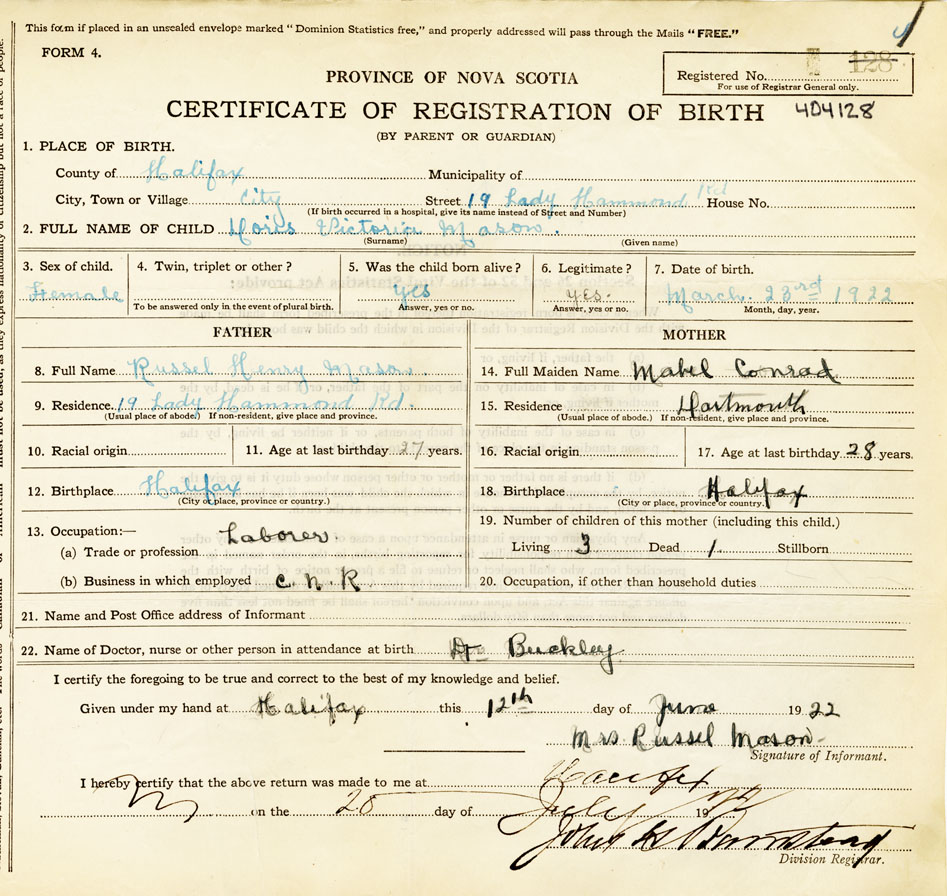 This form if placed in an unsealed envelope marked "Dominion Statistics free," and properly addressed will pass through the Mails "FREE."
FORM 4.
Registered No. 128
For use of Registrar General only.
PROVINCE OF NOVA SCOTIA
CERTIFICATE OF REGISTRATION OF BIRTH 404128
(BY PARENT OR GUARDIAN)
1. PLACE OF BIRTH.
County of Halifax Municipality of
City, Town or Village City Street 19 Lady Hammond Rd House No.
(If birth occurred in a hospital, give its name instead of Street and Number)
2. FULL NAME OF CHILD Doris Victoria Mason.
(Surname) (Given name)
3. Sex of child. 4. Twin, triplet or other? 5. Was the child born alive? 6. Legitimate? 7. Date of birth.
Female Yes yes. March. 23rd 1922
To be answered only in the event of plural birth. Answer, yes or no. Answer, yes or no. Month, day, year.
FATHER MOTHER
8. Full Name Russel Henry Mason. 14. Full Maiden Name Mabel Conrad
9. Residence 19 Lady Hammond Rd. 15. Residence Dartmouth
(Usual place of abode.) If non-resident, give place and province. (Usual place of abode.) If non-resident, give place and province.
10. Racial origin 11. Age at last birthday 27 years. 16. Racial origin 17. Age at last birthday 28 years.
12. Birthplace Halifax 18. Birthplace Halifax
(City or place, province or country.) (City or place, province or country.)
13. Occupation:— Laborer. 19. Number of children of this mother (including this child.)
(a) Trade or profession Living 3 Dead 1. Stillborn
(b) Business in which employed C. N. R 20. Occupation, if other than household duties
21. Name and Post Office address of Informant
22. Name of Doctor, nurse or other person in attendance at birth Dr Buckley
I certify the foregoing to be true and correct to the best of my knowledge and belief.
Given under my hand at Halifax this 12th day of June 1922
Mrs Russel Mason.
Signature of Informant.
I hereby certify that the above return was made to me at Halifax
on the 28 day of July 19
Division Registrar.